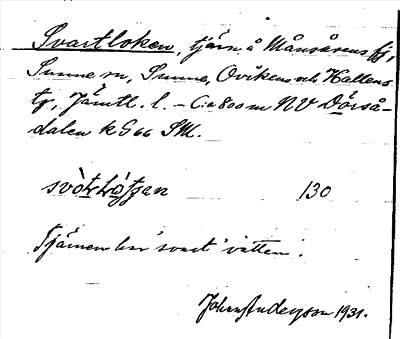 Svartloken, tjärn å Månsåsens fj,
Sunne sn, Sunne, Oviken och Hallens
tg, Jämtl. l. – C:a 800 m NV Dörså-
dalen k G 66 SM.
svòt̥ḷòʃʃan 130
Tjärnen har 'svart' vatten.
Johan Anderzson 1931.